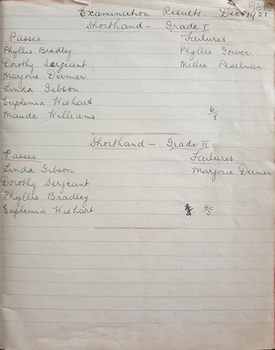 Examination Results. Dec 1921
Shorthand — Grade I
Passes Failures
Phyllis Bradley Phyllis Gower
Dorothy Sergeant Millie Pearlman
Marjorie Dermer.
Linda Gibson
Euphemia Wishart 6/8
Maude Williams.
Shorthand — Grade II
Passes Failures
Linda Gibson Marjorie Dermer
Dorothy Sergeant
Phyllis Bradley
Euphemia Wishart 4/5